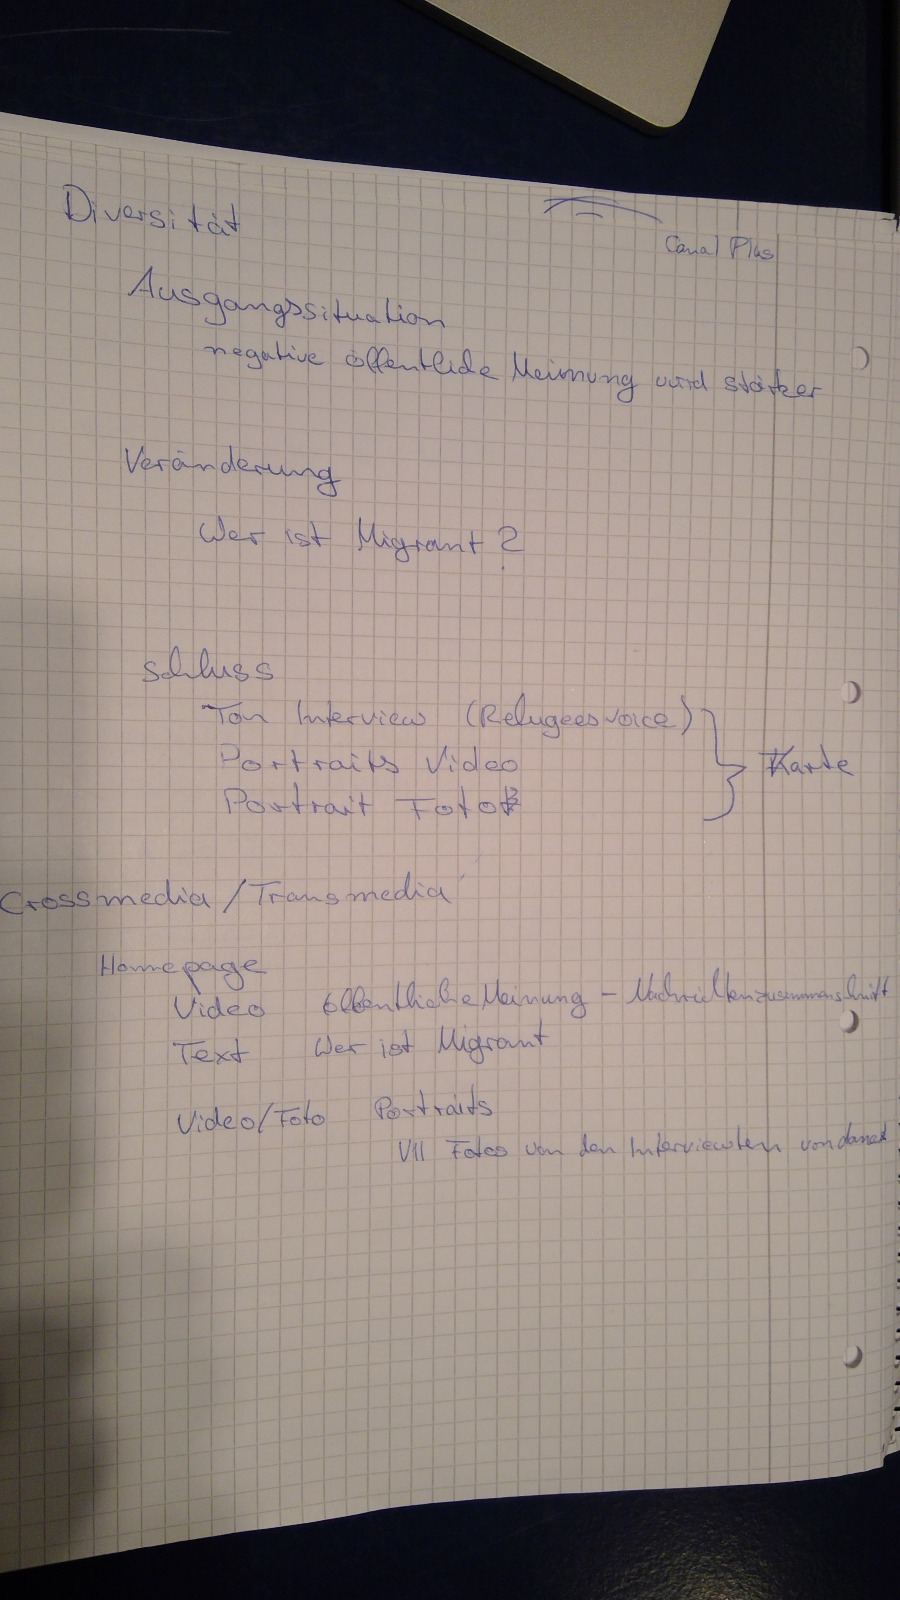 Diversität
Canal Plus
Ausgangssituation
negative öffentliche Meinung wird stärker
Veränderung
Wer ist Migrant?
Schluss
Ton Interview (Refugeesvoice)
Portraits Video
Portrait Foto
Karte
Crossmedia/Transmedia
Homepage
Video öffentliche Meinung - Nachrichtenzusammenschnitt
Text Wer ist Migrant
Video/Foto Portraits
Fotos von den Interviewten von